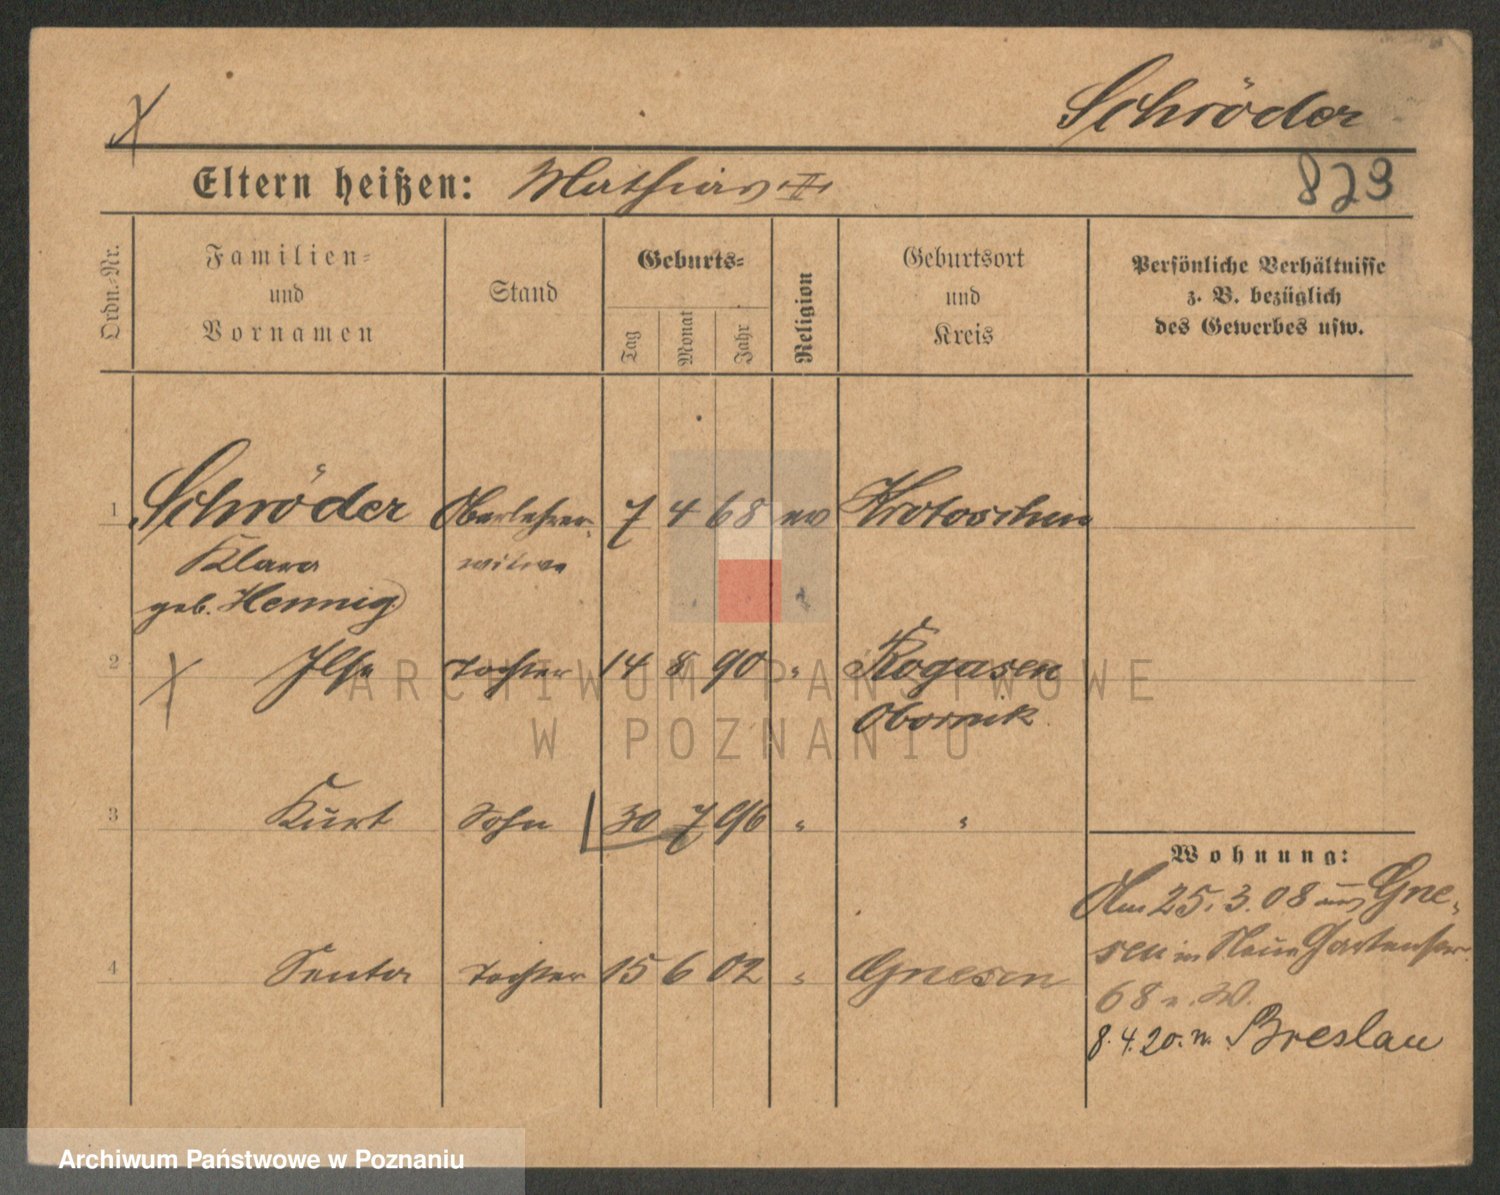 Schröder
Eltern heißen: Mathias II
823
Ordn.-Nr.
Familien-
und
Vornamen
Stand
Geburts-
Tag
Monat
Jahr
Religion
Geburtsort
und
Kreis
Persönliche Verhältnisse
z. B. bezüglich
des Gewerbes usw.
1 Schröder Oberlehrer- 7 4 68 ev Krotoschin
Klara witwe
geb. Hennig
2 Ilse Tochter 14 8 90 " Rogasen
Obornik
3 Kurt Sohn 30 7 96 " "
Wohnung:
Am 25.3.08 aus Gne-
sen in Neue Gartenstr.
4 Senta Tochter 15 6 02 " Gnesen
68 b. W.
8.4.20. n. Breslau
ARCHIWUM PAŃSTWOWE
W POZNANIU
Archiwum Państwowe w Poznaniu